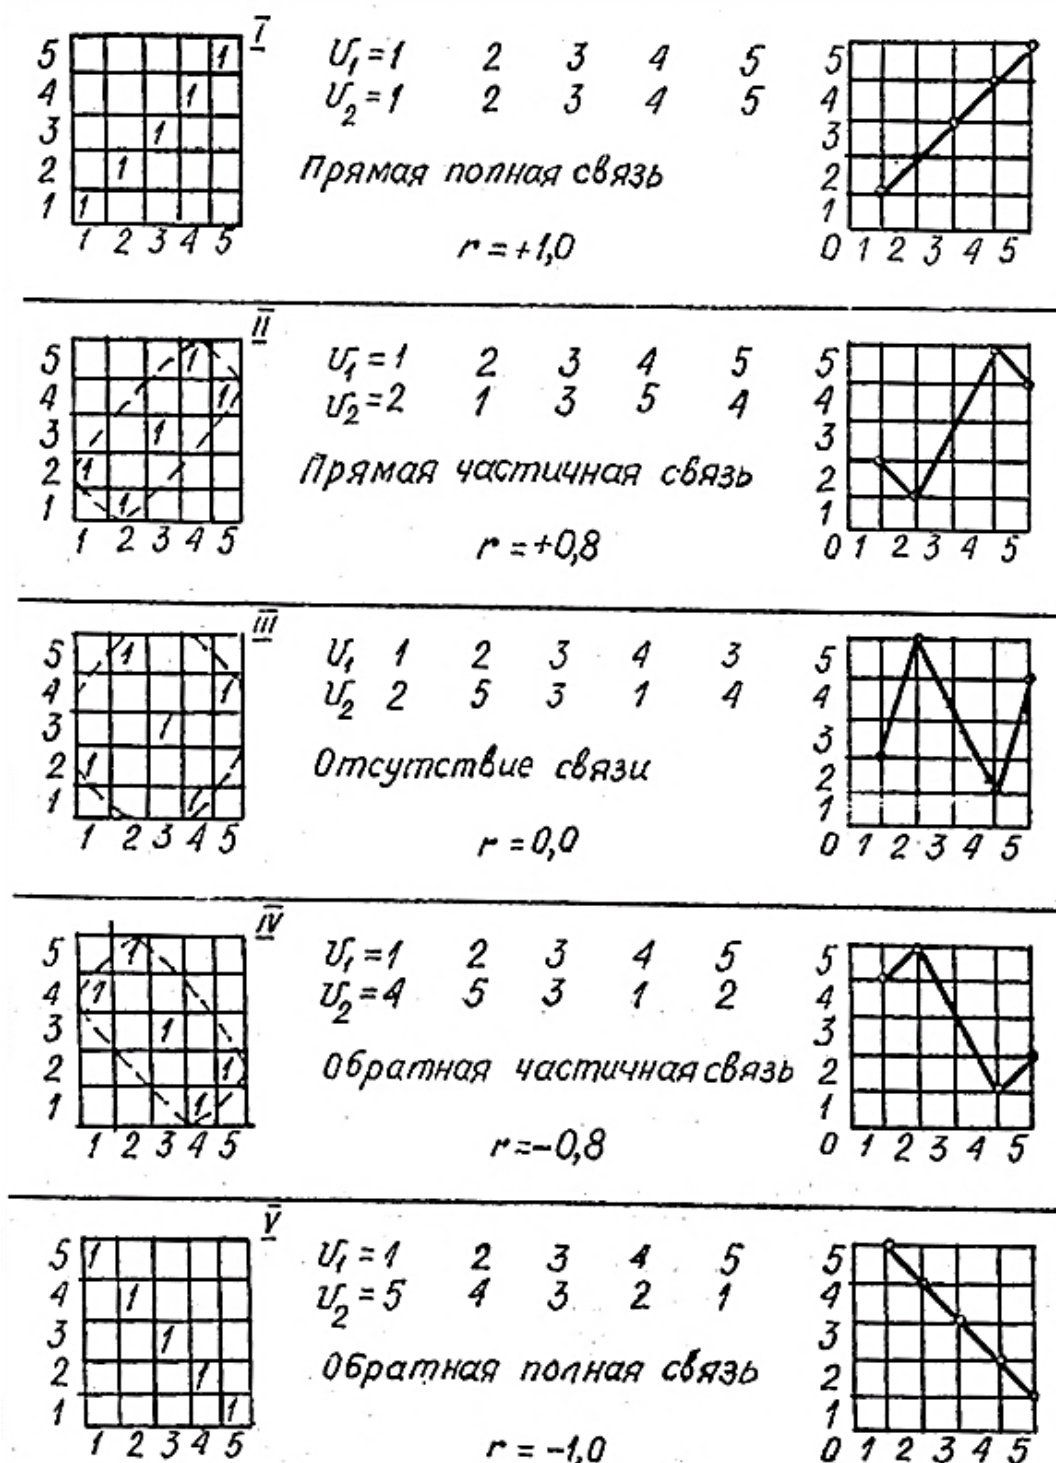 I
5 1
4 1
3 1
2 1
1 1
1 2 3 4 5
U₁=1 2 3 4 5
U₂=1 2 3 4 5
Прямая полная связь
r=+1,0
5
4
3
2
1
0 1 2 3 4 5
II
5 1
4 1
3 1
2 1
1 1
1 2 3 4 5
U₁=1 2 3 4 5
U₂=2 1 3 5 4
Прямая частичная связь
r=+0,8
5
4
3
2
1
0 1 2 3 4 5
III
5 1
4 1
3 1
2 1
1 1
1 2 3 4 5
U₁ 1 2 3 4 3
U₂ 2 5 3 1 4
Отсутствие связи
r=0,0
5
4
3
2
1
0 1 2 3 4 5
IV
5 1
4 1
3 1
2 1
1 1
1 2 3 4 5
U₁=1 2 3 4 5
U₂=4 5 3 1 2
Обратная частичная связь
r=-0,8
5
4
3
2
1
0 1 2 3 4 5
V
5 1
4 1
3 1
2 1
1 1
1 2 3 4 5
U₁=1 2 3 4 5
U₂=5 4 3 2 1
Обратная полная связь
r=-1,0
5
4
3
2
1
0 1 2 3 4 5